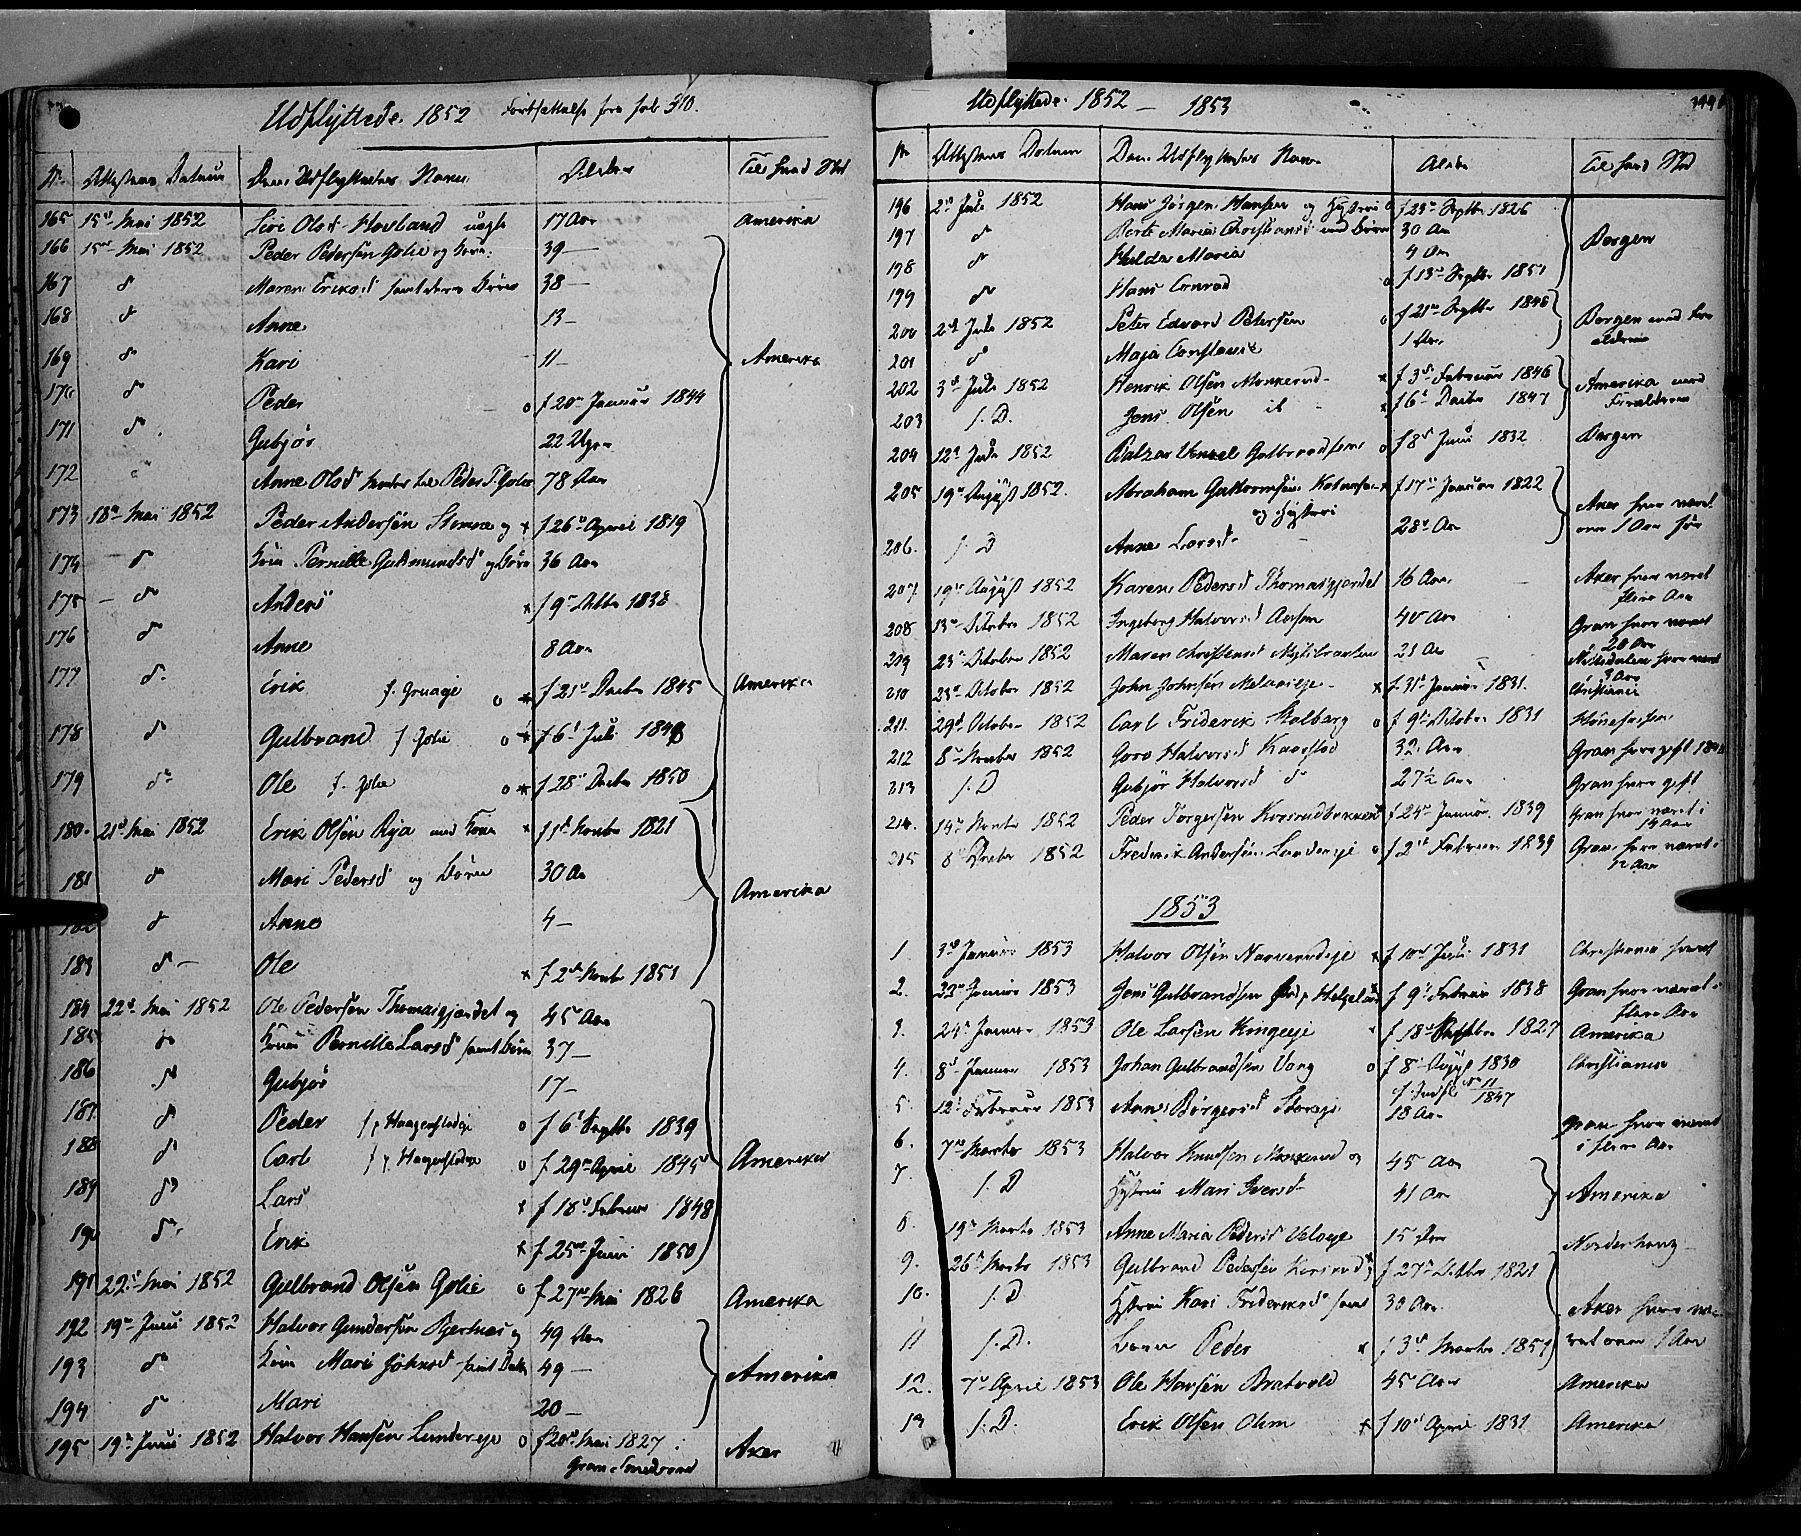 Udflyttede 1852 Fortsættelse fra fol 310.
No Attestens Datum Den Udflyttedes Navn Alder Til hvad Sted
165 15de Mai 1852 Siri Olsd Hovland ugift 17 Aar Amerika
166 15de Mai 1852 Peder Pedersen Golie og Kone 39 —
167 do Maren Eriksd samt deres Børn 38 —
168 do Anne 13 —
169 do Kari 11 — Amerika
170 do Peder o f 20de Januar 1844
171 do Gubjør 22 Uger
172 " Anne Olsd Moder til Peder P. Golie 78 Aar
173 18de Mai 1852 Peder Andersen og x f 26de April 1819
174 do Kone Pernille Gudmundsd og Børn 36 Aar
175 do Anders x f 9de 1838
176 do Anne 8 Aar
177 do Erik f. Gruageie o x f 21de Decbr 1845 Amerika
178 do Gulbrand f Golie o x f 6te Juli 1848
179 do Ole f. Golie o x f 28de Decbr 1850
180 21de Mai 1852 Erik Olsen Rya med Kone x f 1ste Novbr 1821
181 do Mari Pedersd og Børn 30 Aar Amerika
182 do Anne 4 —
183 do Ole x f 2den Novbr 1851
184 22de Mai 1852 Ole Pedersen Thomasgjordet og 45 Aar
185 do Kone Pernille Larsd samt Børn 37 —
186 do Gubjør 17 —
187 do Peder f p Haagenstadeie o f 6te Septbr 1839
188 do Carl f p Haagenstadeie o f 29de April 1845 Amerika
189 do Lars x f 18de Februar 1848
190 do Erik x f 25de Juni 1850
191 22de Mai 1852 Gulbrand Olsen Golie o f 27de Mai 1826 Amerika
192 19de Juni 1852 Halvor Gundersen Bjertnæs og 49 Aar
193 do Kone Mari Johnsd samt Datter 49 — Amerika
194 do Mari 20 —
195 19de Juni 1852 Halvor Hansen Lundereie o f 28de Mai 1827 Aker
Gran
Udflyttede 1852 — 1853
No Attestens Datum Den Udflyttedes Navn Alder Til hvad Sted
196 2den Juli 1852 Hans Jørgen Hansen og Hustru o f 23de Septbr 1826
197 do Berte Maria Christiansd med Børn 30 Aar Bergen
198 do Hulda Maria 4 Aar
199 do Hans Conrad o f 13de Septbr 1851
200 2den Juli 1852 Peter Edvard Petersen o f 21de Septbr 1848 Bergen med For
201 do Maja Constance 1 Aar ældrene
202 3die Juli 1852 Henrik Olsen Monkerud x f 3die Februar 1846 Amerika med
203 s. D. Jens Olsen it x f 6te Decbr 1847 Forældrene
204 12te Juli 1852 Balzar Wenzel Gulbrandsen o f 8de Juni 1832 Bergen
205 19de August 1852. Abraham Guttormsen x f 17de Januar 1822
og Hustru Aker hvor været
206. s. D Anne Larsd 28de Aar over 1 Aar før
207 19de August 1852 Karen Pedersd Thomasgjordet 16 Aar Aker hvor været
flere Aar
208 13de October 1852 Ingeborg Halvorsd Aasen 40 Aar Gran hvor været
20 Aar
209 23de October 1852 Maren Christensd 21 Aar hvor været
3 Aar
210 23de October 1852 John Johnsen x f 31te Januar 1831. Christiania
211 29de October 1852 Carl Friderik Stalberg o f 9de October 1831 Hønefossen
212 8de Novbr 1852 Goro Halvorsd Kaarstad 32 Aar Gran hvor gift
213 s. D Gubjør Halvorsd do 27½ Aar Gran hvor gift
214 14de Novbr 1852 Peder Torgersen Kosrudbakken f 24de Januar 1839 Gran hvor været i
Aar
215 8de Decbr 1852 Frederik Andersen Lundereie o f 2den Februar 1839 Gran hvor været i
½ Aar
1853
1. 3die Januar 1853 Halvor Olsen x f 10de Juli 1831 Christiania været
2. 22de Januar 1853 Jens Gulbrandsen Helgeland f 9de Februar 1838 Gran hvor været i
flere Aar
3. 24de Januar 1853 Ole Larsen Kingeeie f 18de 1827 Amerika
4. 8de Januar 1853 Johan Gulbrandsen Vang o f 8de August 1830 Christiania
f Indfl No 11 1847
5. 12te Februar 1853 Anne Børgersd Storeie 18 Aar Gran hvor været
i flere Aar
6. 7de Marts 1853 Halvor Knudsen Monkerud og 45 Aar
7. s. D Hustru Mari Iversd 41 Aar Amerika
8. 19de Marts 1853 Anne Maria Pedersd 15 Aar Norderhoug
9. 26de Marts 1853 Gulbrand Pedersen x f 27de Octbr 1821
10. s. D Hustru Kari Frideriksd samt 30 Aar Aker hvor væ-
11 s. D. Barn Peder x f 3die Marts 1851 ret over 1 Aar
12. 7de April 1853 Ole Hansen Bratvold 45 Aar Amerika
13 s. D. Erik Olsen Olim x f 10de April 1831 Amerika